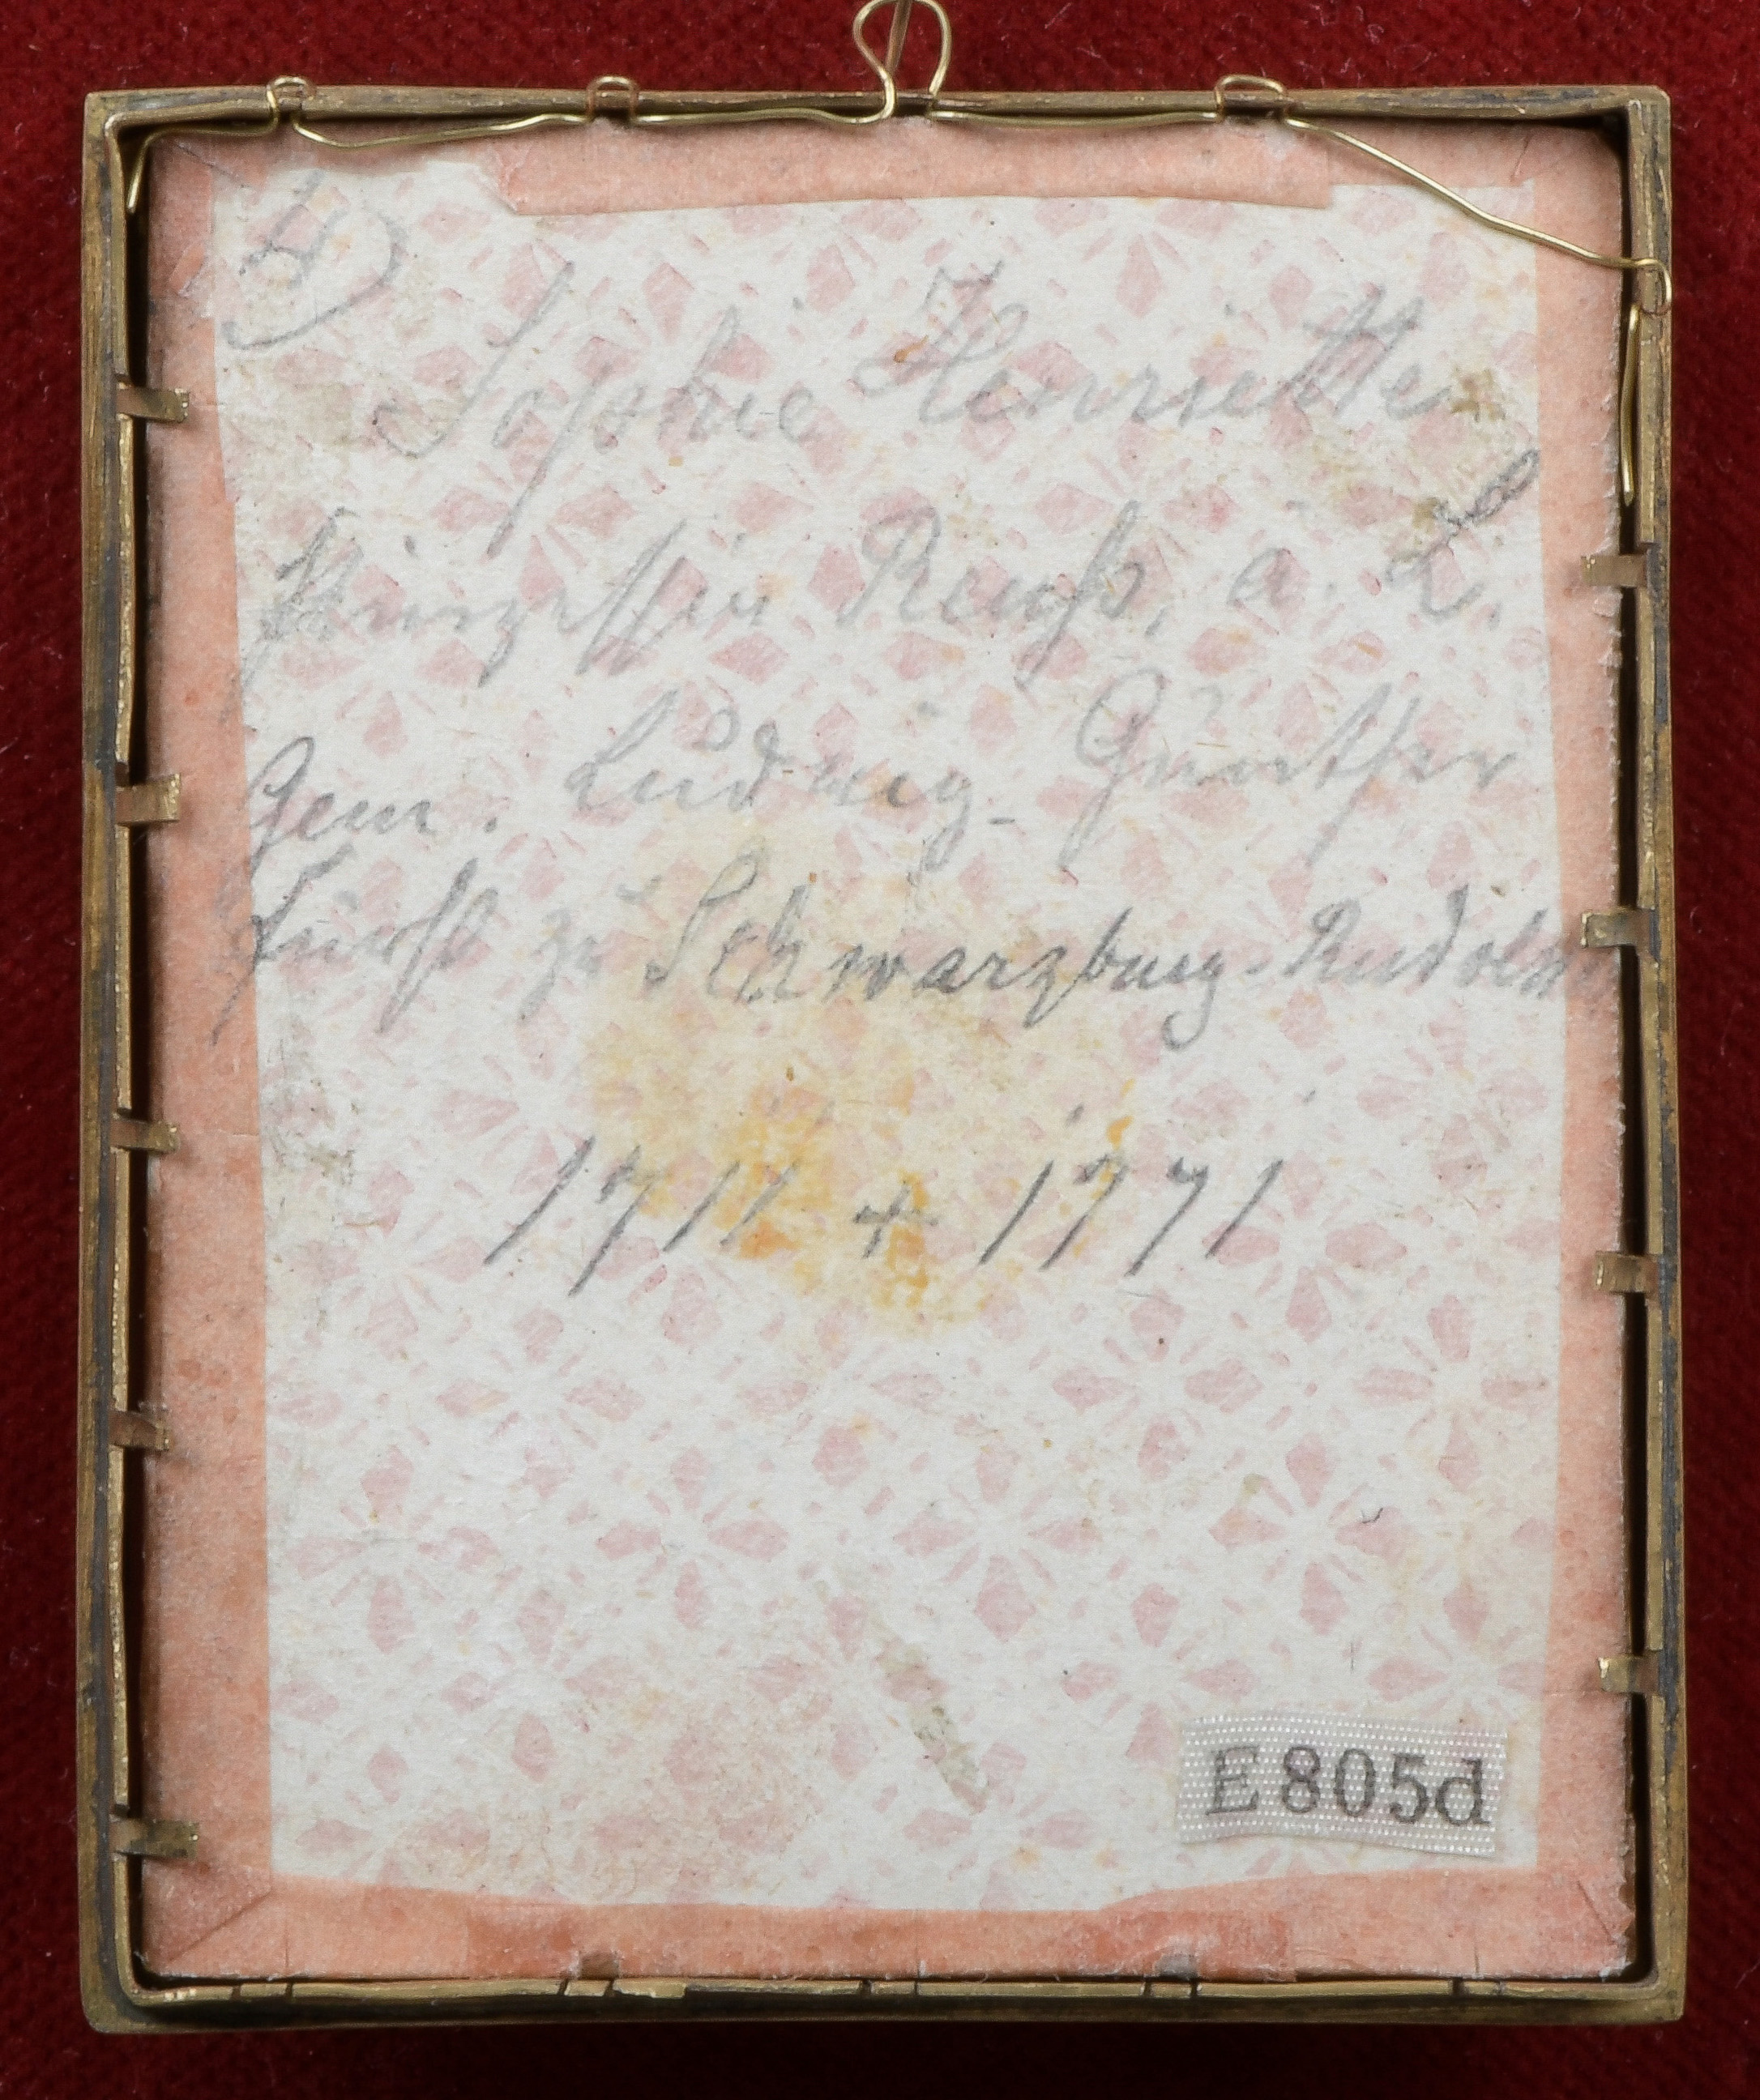 4)
Sophie Henriette
Prinzessin Reuß, ä. L.
Gem. Ludwig-Günther
Fürst zu Schwarzburg-Rudolst
1711 + 1771
E805d